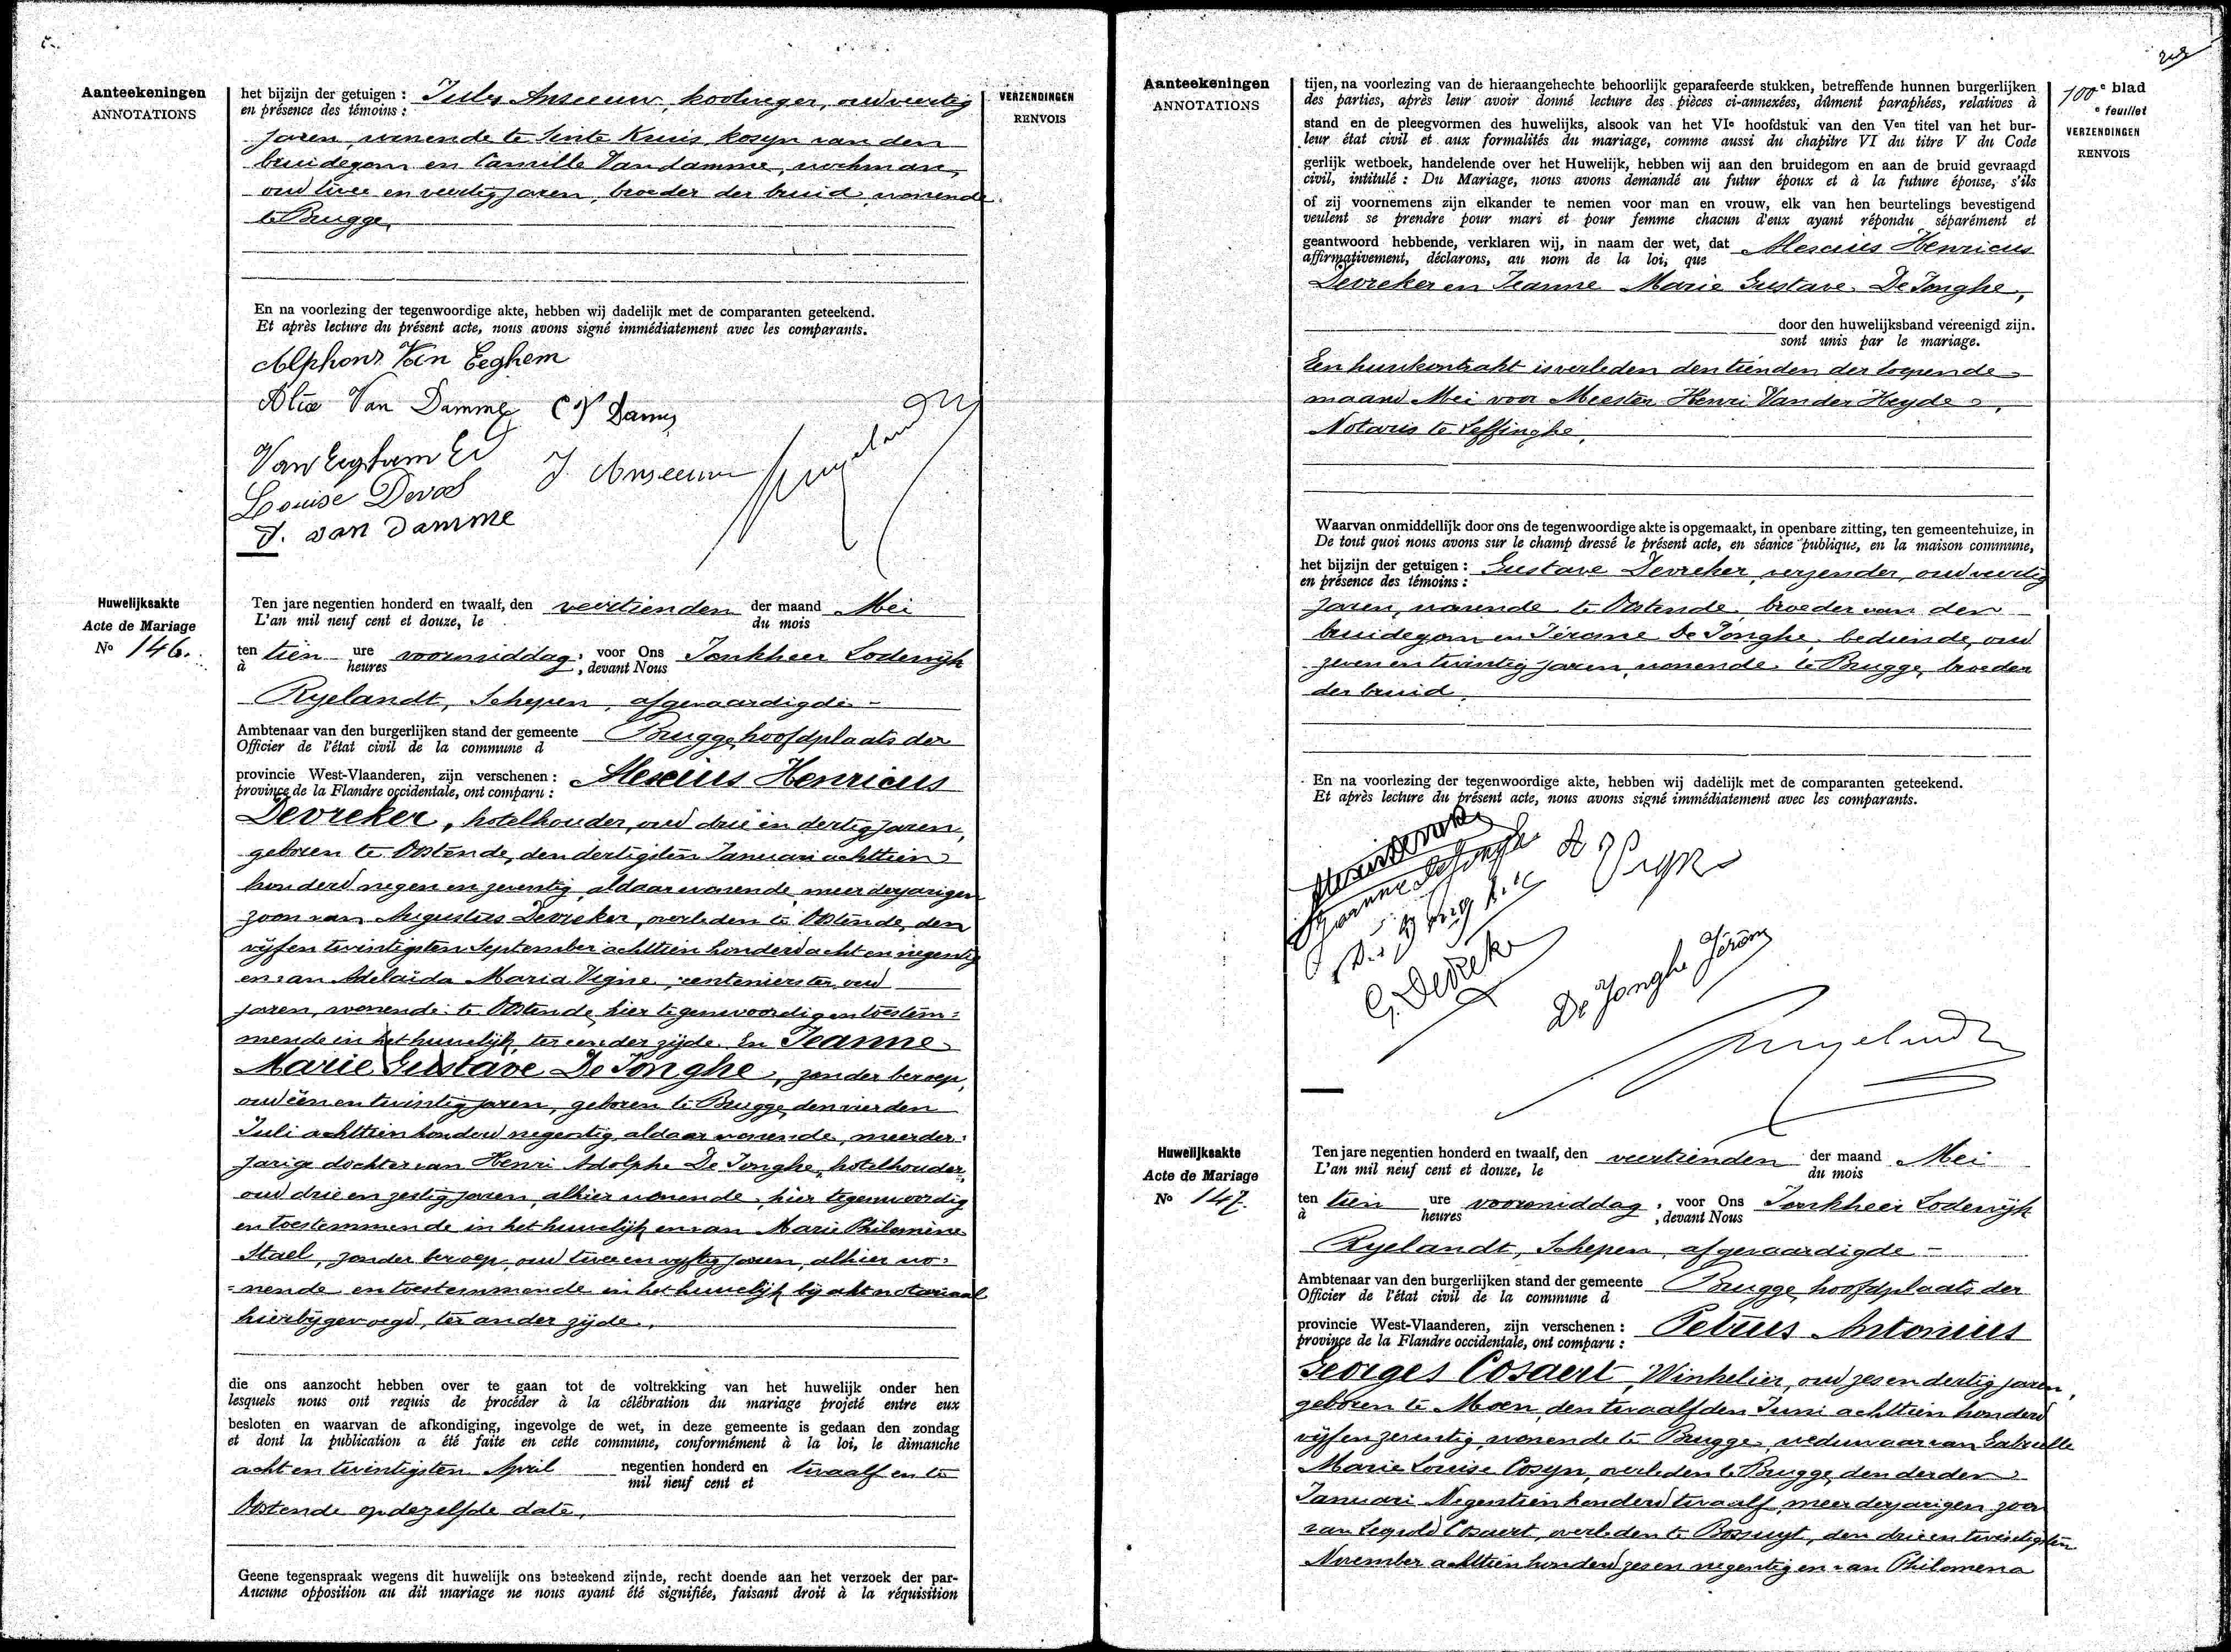 Aanteekeningen
ANNOTATIONS
het bijzijn der getuigen : Jules Anseeuw, koolneger, oud veertig
en présence des témoins :
VERZENDINGEN
RENVOIS
jaren, wonende te Sinte Kruis, kosyn van den
bruidegom en Camille Van damme, werkman,
oud twee en veertig jaren, broeder der bruid, wonende
te Brugge.
En na voorlezing der tegenwoordige akte, hebben wij dadelijk met de comparanten geteekend.
Et après lecture du présent acte, nous avons signé immédiatement avec les comparants.
Alphons Van Eeghem
Alice Van Damme C V Damme
Van Eeghem Ed
J Anseeuw Ryelandt
Louise Devos
J. van Damme
Huwelijksakte
Acte de Mariage
No 146.
Ten jare negentien honderd en twaalf, den veertienden der maand Mei
L'an mil neuf cent et douze, le du mois
ten tien ure voormiddag, voor Ons Jonkheer Lodewijk
à heures , devant Nous
Ryelandt, Schepen, afgevaardigde -
Ambtenaar van den burgerlijken stand der gemeente Brugge, hoofdplaats der
Officier de l'état civil de la commune d
provincie West-Vlaanderen, zijn verschenen : Alexius Henricus
province de la Flandre occidentale, ont comparu :
Devreker, hotelhouder, oud drie en dertig jaren,
geboren te Ostende, den dertigsten Januari achttien
honderd negen en zeventig, aldaar wonende, meerderjarigen
zoon van Augustus Devreker, overleden te Ostende, den
vijf en twintigsten September achttien honderd acht en negentig
en van Adelaïda Maria Vigne, rentenierster, oud
jaren, wonende te Ostende, hier tegenwoordig en toestem=
mende in het huwelijk, ter eender zijde. En Jeanne
Marie Gustave De Jonghe, zonder beroep,
oud één en twintig jaren, geboren te Brugge, den vierden
Juli achttien honderd negentig, aldaar wonende, meerder=
jarige dochter van Henri Adolphe De Jonghe, hotelhouder,
oud drie en zestig jaren, alhier wonende, hier tegenwoordig
en toestemmende in het huwelijk en van Marie Philomène
Stael, zonder beroep, oud twee en vijftig jaren, alhier wo=
=nende en toestemmende in het huwelijk bij akt notariaal
hierbijgevoegd, ter ander zijde.
die ons aanzocht hebben over te gaan tot de voltrekking van het huwelijk onder hen
lesquels nous ont requis de procéder à la célébration du mariage projeté entre eux
besloten en waarvan de afkondiging, ingevolge de wet, in deze gemeente is gedaan den zondag
et dont la publication a été faite en cette commune, conformément à la loi, le dimanche
acht en twintigsten April negentien honderd en twaalf en te
mil neuf cent et
Ostende op dezelfde date.
Geene tegenspraak wegens dit huwelijk ons beteekend zijnde, recht doende aan het verzoek der par-
Aucune opposition au dit mariage ne nous ayant été signifiée, faisant droit à la réquisition
Aanteekeningen
ANNOTATIONS
tijen, na voorlezing van de hieraangehechte behoorlijk geparafeerde stukken, betreffende hunnen burgerlijken
des parties, après leur avoir donné lecture des pièces ci-annexées, dûment paraphées, relatives à
100e blad
e feuillet
VERZENDINGEN
RENVOIS
stand en de pleegvormen des huwelijks, alsook van het VIe hoofdstuk van den Ven titel van het bur-
leur état civil et aux formalités du mariage, comme aussi du chapitre VI du titre V du Code
gerlijk wetboek, handelende over het Huwelijk, hebben wij aan den bruidegom en aan de bruid gevraagd
civil, intitulé : Du Mariage, nous avons demandé au futur époux et à la future épouse, s'ils
of zij voornemens zijn elkander te nemen voor man en vrouw, elk van hen beurtelings bevestigend
veulent se prendre pour mari et pour femme chacun d'eux ayant répondu séparément et
geantwoord hebbende, verklaren wij, in naam der wet, dat Alexius Henricus
affirmativement, déclarons, au nom de la loi, que
Devreker en Jeanne Marie Gustave De Jonghe,
door den huwelijksband vereenigd zijn.
sont unis par le mariage.
Een huwkontrakt is verleden den tienden der loopende
maand Mei voor Meester Henri Van der Heyde,
Notaris te Leffinghe.
Waarvan onmiddellijk door ons de tegenwoordige akte is opgemaakt, in openbare zitting, ten gemeentehuize, in
De tout quoi nous avons sur le champ dressé le présent acte, en séance publique, en la maison commune,
het bijzijn der getuigen : Gustave Devreker, verzender, oud veertig
en présence des témoins :
jaren, wonende te Ostende, broeder van den
bruidegom en Jérome De Jonghe, bediende, oud
zeven en twintig jaren, wonende te Brugge, broeder
der bruid.
En na voorlezing der tegenwoordige akte, hebben wij dadelijk met de comparanten geteekend.
Et après lecture du présent acte, nous avons signé immédiatement avec les comparants.
Jeanne DeJonghe
G. Devreker
De Jonghe Jérôme
Ryelandt
Huwelijksakte
Acte de Mariage
No 147.
Ten jare negentien honderd en twaalf, den veertienden der maand Mei
L'an mil neuf cent et douze, le du mois
ten tien ure voormiddag, voor Ons Jonkheer Lodewijk
à heures , devant Nous
Ryelandt, Schepen, afgevaardigde -
Ambtenaar van den burgerlijken stand der gemeente Brugge, hoofdplaats der
Officier de l'état civil de la commune d
provincie West-Vlaanderen, zijn verschenen : Petrus Antonius
province de la Flandre occidentale, ont comparu :
Georges Cosaert, Winkelier, oud zes en dertig jaren,
geboren te Moen, den twaalfden Juni achttien honderd
vijf en zeventig, wonende te Brugge, weduwaar van Gabrielle
Marie Louise Cosyn, overleden te Brugge, den derden
Januari Negentien honderd twaalf, meerderjarigen zoon
van Leopold Cosaert, overleden te Bossuyt, den drie en twintigsten
November achttien honderd zes en negentig en van Philomena